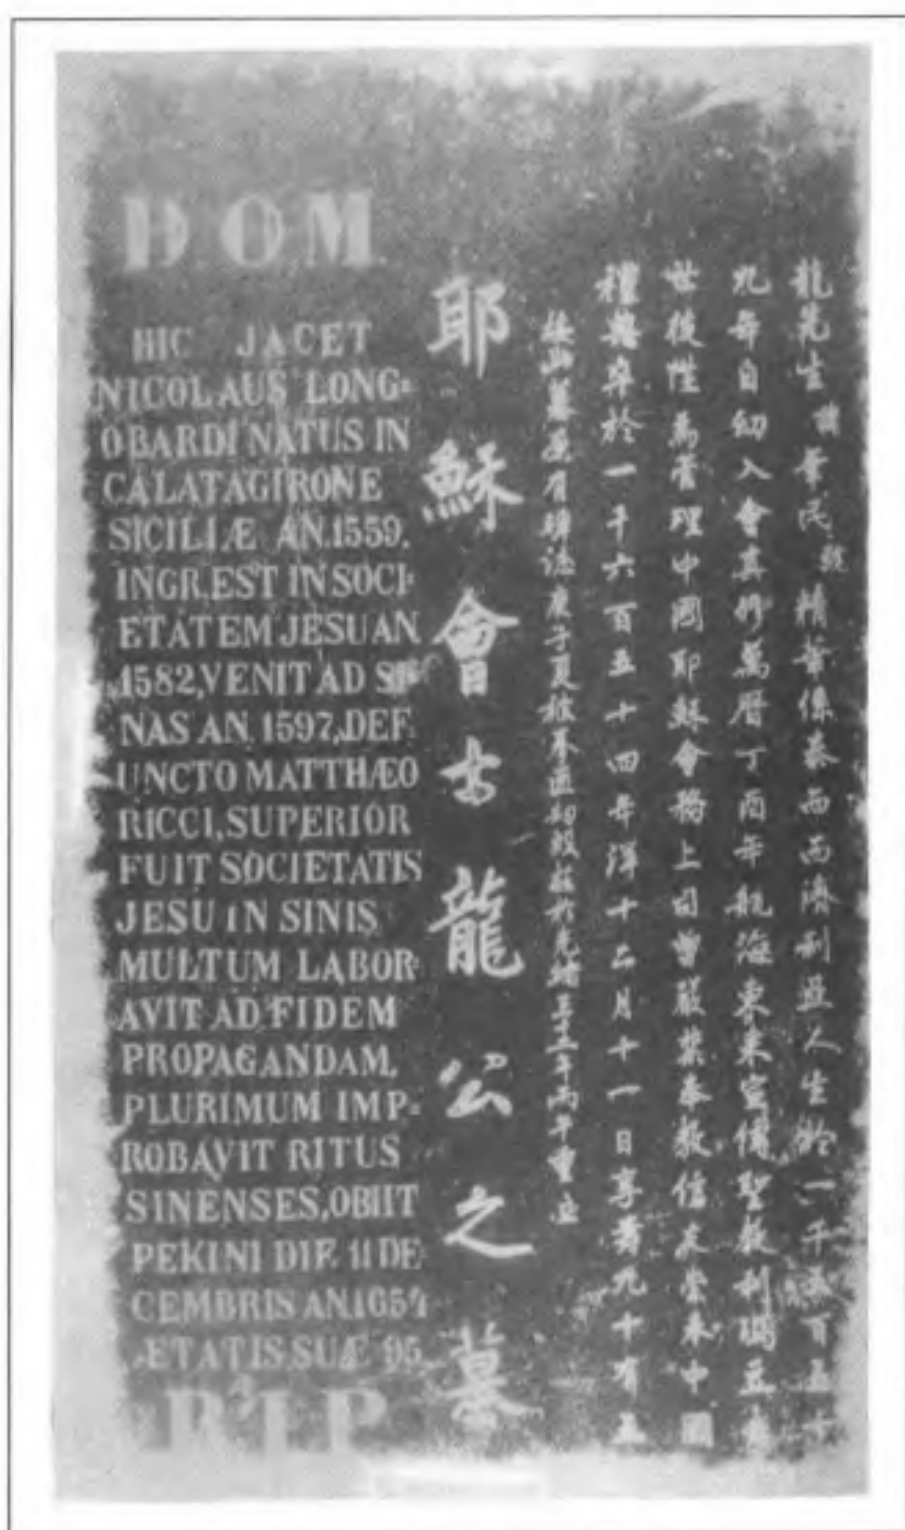 D O M
HIC JACET
NICOLAUS LONG=
OBARDI NATUS IN
CALATAGIRONE
SICILIÆ AN.1559.
INGR.EST IN SOCI=
ETATEM JESU AN
1582,VENIT AD SI=
NAS AN. 1597,DEF=
UNCTO MATTHÆO
RICCI,SUPERIOR
FUIT SOCIETATIS
JESU IN SINIS
MULTUM LABOR=
AVIT AD FIDEM
PROPAGANDAM,
PLURIMUM IMP=
ROBAVIT RITUS
SINENSES,OBIIT
PEKINI DIE 11 DE
CEMBRIS AN.1654
ÆTATIS SUÆ 95
R I P
耶穌會士龍公之墓
龍先生諱華民號精華係泰西西濟利亞人生於一千五百五十
九年自幼入會真修萬曆丁酉年航海東來宣傳聖教利瑪竇去
世後陞為管理中國耶穌會務上司曾嚴禁奉教信友從中國
禮典卒於一千六百五十四年洋十二月十一日享壽九十有五
按此墓原有碑誌庚子夏被拳匪切毀茲於光緒三十二年丙午重立